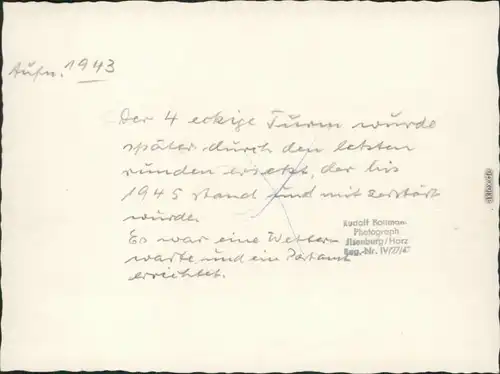 Aufn. 1943
Der 4 eckige Turm wurde
später durch den letzten
runden ersetzt, der bis
1945 stand und mit zerstört
wurde.
Es war eine Wetter-
warte und ein Postamt
errichtet.
Rudolf
Photograph
Ilsenburg/Harz
Reg.-Nr. IV/27/47